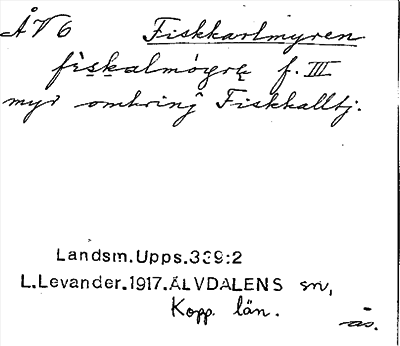 ÅV6 Fiskkarlmyren
fiskalmóyrę f. III
myr omkring Fiskkalltj.
Landsm.Upps.339:2
L.Levander.1917.ÄLVDALENS sn,
Kopp. län.
ås.